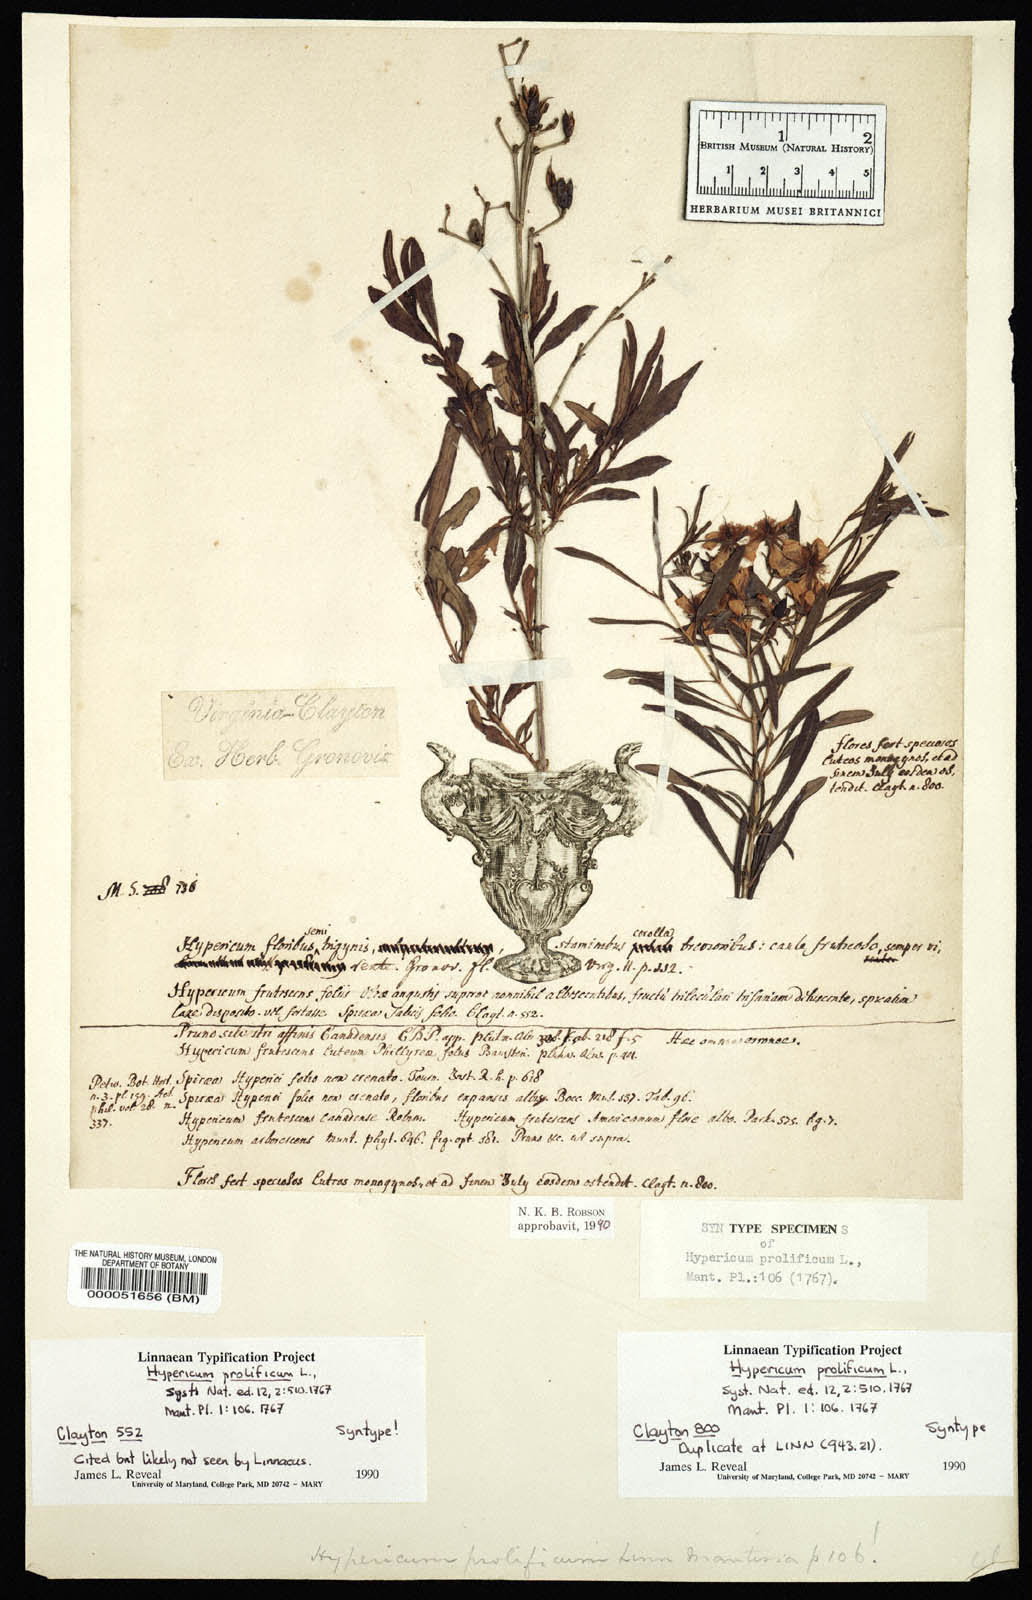 1 2
British Museum (Natural History)
1 2 3 4 5
HERBARIUM MUSEI BRITANNICI
Virginia-Clayton
Ex. Herb. Gronovii
flores fert speciosos
luteos monogynos, et ad
finem July eosdem os,
tendit. Clayt. n. 800.
M. S. 736
Hypericum floribus semi trigynis, staminibus corolla brevioribus: caule fruticoso, semper vi,
rente. Gronov. fl. Virg. II. p.
Hypericum frutescens foliis angustis superne nonnihil albescentibus, fructu triloculari trifariam dihiscente, spicatim
laxe disposito. vel fortasse Spiraea Salicis folio. Clayt. n. 552.
Pruno silvestri affinis Canadensis C.B.P. app. Pluk. Alm. 218 f. 5 Haec omnia erronea.
Hypericum frutescens luteum Phillyreae foliis Banisteri. Plukn.
Petiv. Bot. Hort. Spiraea Hyperici folio non crenato. Tourn. Inst. R. h. p. 618
n. 3. pl. 159. Act. Spiraea Hyperici folio non crenato, floribus expansis albis. Bocc. Mus. 137. Tab. 96.
phil. vol 28. n.
337. Hypericum frutescens Canadense Robin. Hypericum frutescens Americanum flore albo. Park. 575. fig. 7.
Hypericum arborescens Munt. phyt. 646. fig. opt. 381. Pruno &c. ut supra.
Flores fert speciosos luteos monogynos, et ad finem July eosdem ostendit. Clayt. n. 800.
N. K. B. Robson
approbavit, 1990
SYN TYPE SPECIMEN S
of
Hypericum prolificum L.,
Mant. Pl.:106 (1767).
THE NATURAL HISTORY MUSEUM, LONDON
DEPARTMENT OF BOTANY
000051656 (BM)
Linnaean Typification Project
Hypericum prolificum L.,
Syst. Nat. ed. 12, 2:510. 1767
Mant. Pl. 1:106. 1767
Clayton 552 Syntype!
Cited but likely not seen by Linnaeus.
James L. Reveal 1990
University of Maryland, College Park, MD 20742 – MARY
Linnaean Typification Project
Hypericum prolificum L.,
Syst. Nat. ed. 12, 2:510. 1767
Mant. Pl. 1:106. 1767
Clayton 800 Syntype
Duplicate at LINN (943.21).
James L. Reveal 1990
University of Maryland, College Park, MD 20742 – MARY
Hypericum prolificum Linn Mantissa p 106!